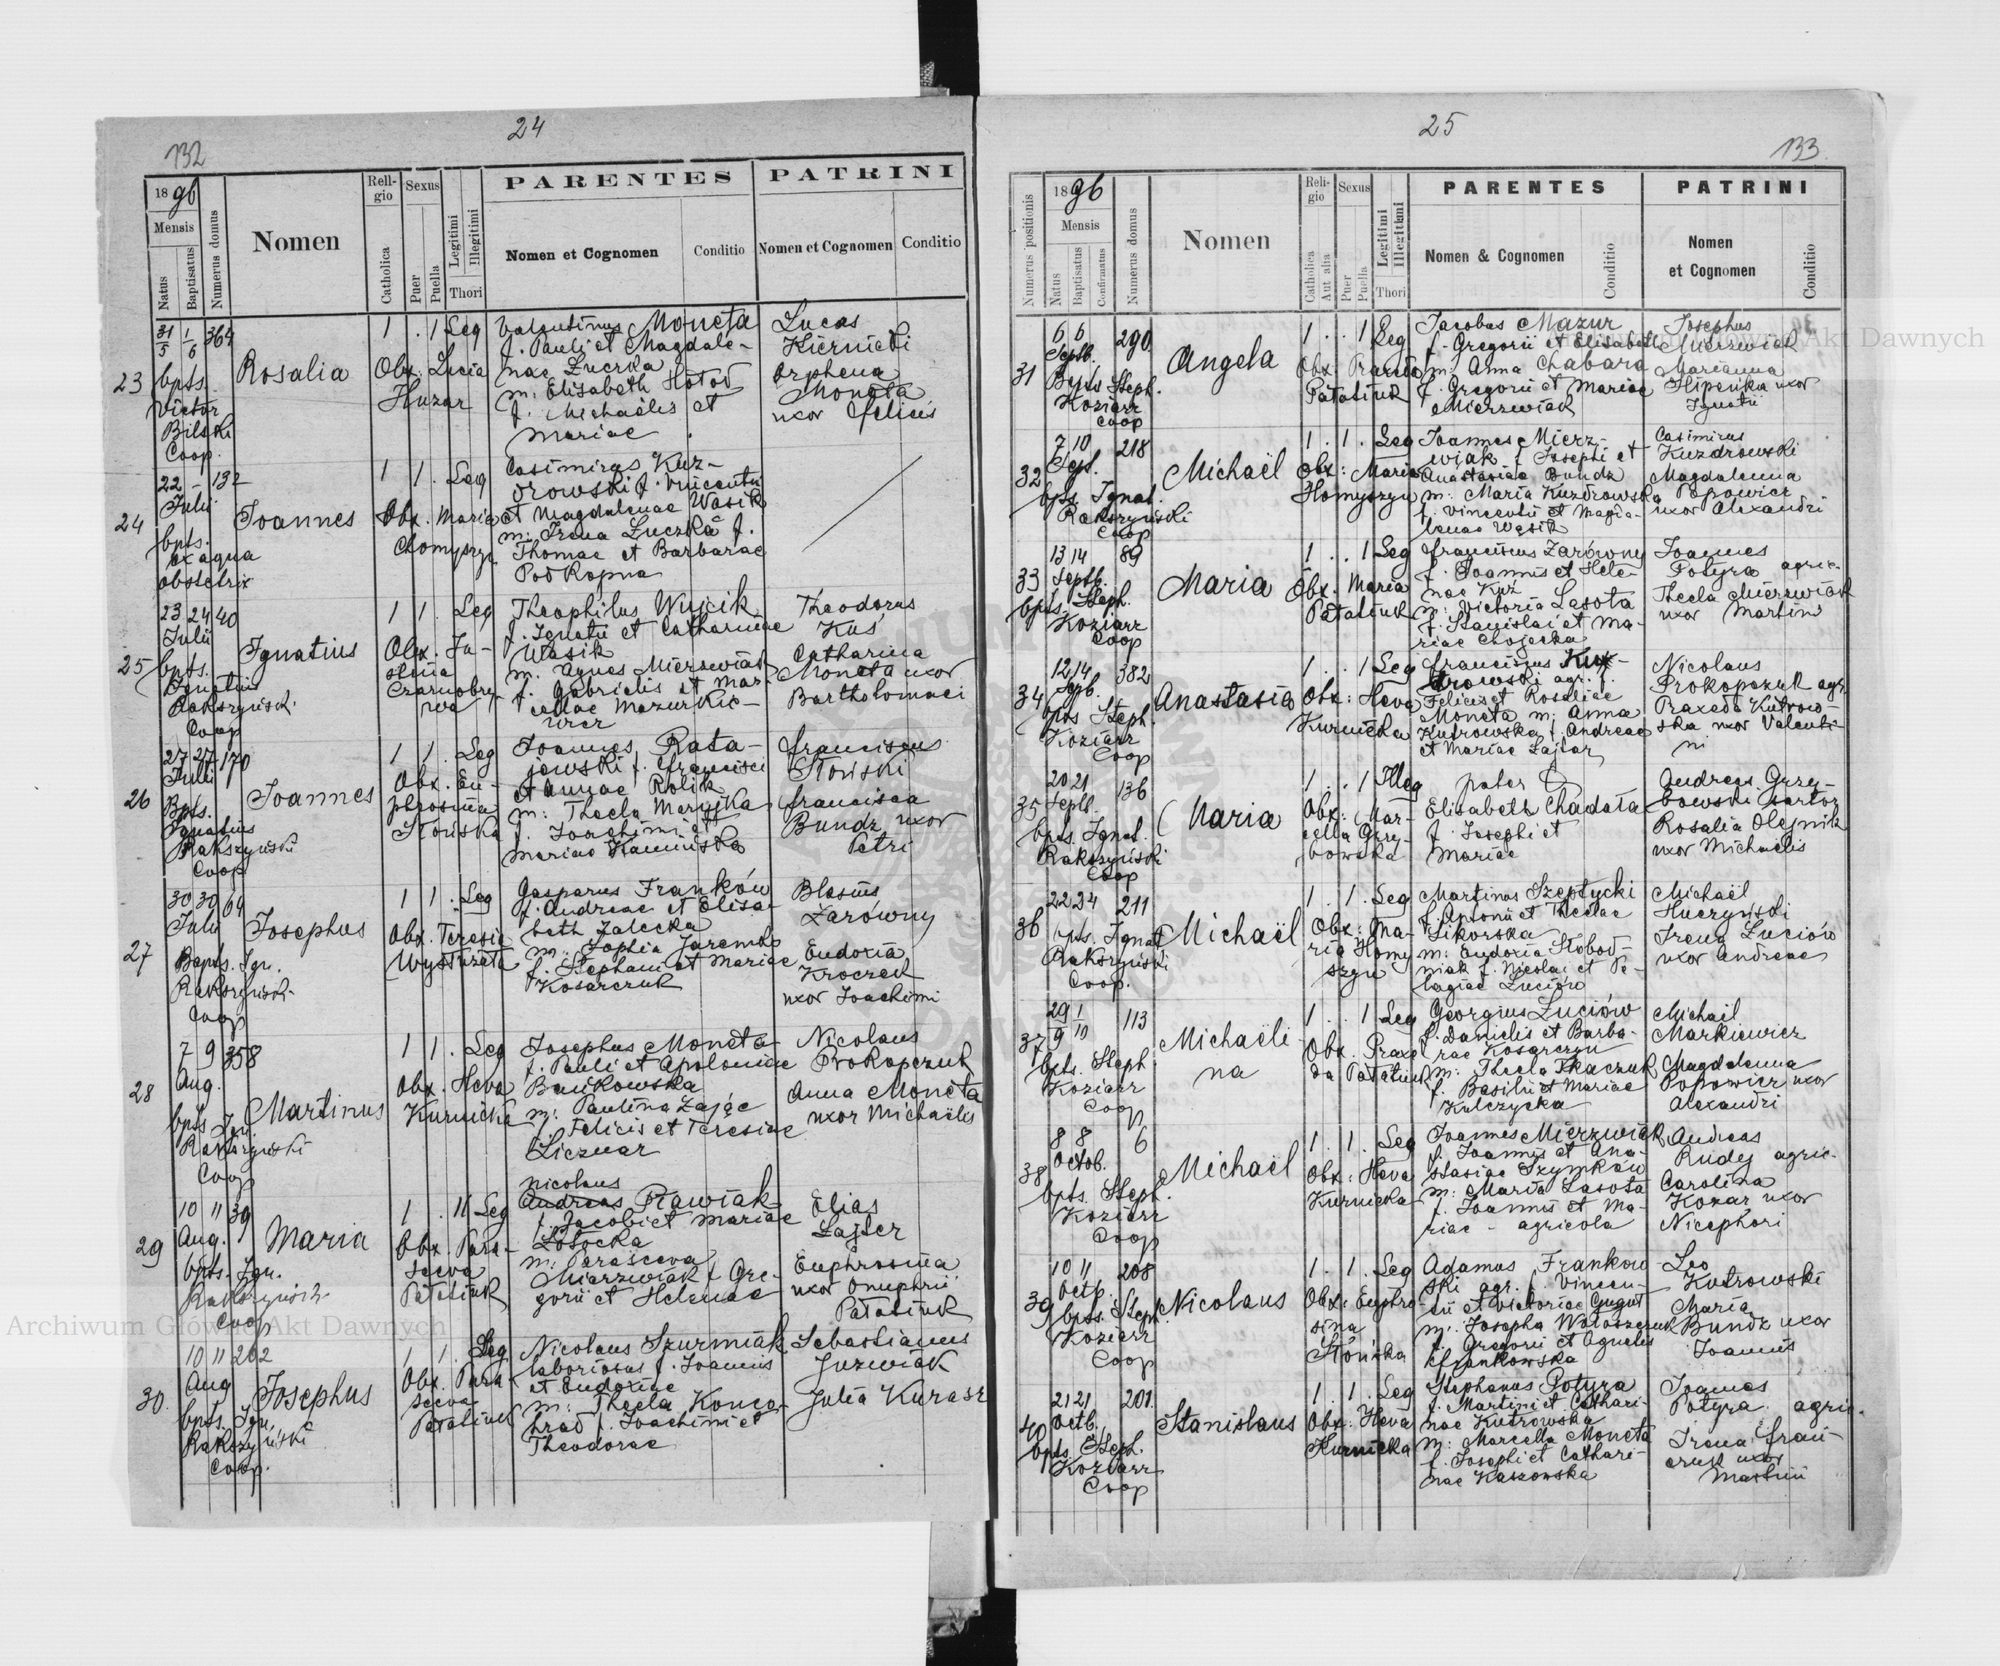 24
132
1896
Mensis
Natus
Baptisatus
Numerus domus
Nomen
Religio
Catholica
Sexus
Puer
Puella
Legitimi
Illegitimi
Thori
PARENTES
Nomen et Cognomen
Conditio
PATRINI
Nomen et Cognomen
Conditio
23
31/5 1/6 364
bpts.
Victor
Bilski
Coop.
Rosalia
1 . 1 Leg
Obx. Lucia
Huzar
Valentinus Moneta
f. Pauli et Magdale-
nae Łuczka
m: Elisabeth Hołod
f. Michaëlis et
Mariae
Lucas
Kiernicki
Orphena
Moneta
uxor Felicis
24
22 - 132
Julii
bpts.
ex aqua
obstetrix
Joannes
1 1 . Leg
Obx. Maria
Chomyszyn
Casimirus Kuz-
drowski f. Vincentii
et Magdalenae Wąsik
m: Irena Łuczka f.
Thomae et Barbarae
Podkopna
25
23 24 40
Julii
bpts.
Ignatius
Rakszyński
Coop
Ignatius
1 1 . Leg
Obx. Ju-
stina
Czarnobry-
wa
Theophilus Wujcik
f. Ignatii et Catharinae
Wąsik
m. Agnes Mierzwiak
f. Gabrielis et Mar-
cellae Mazurkie-
wicz
Theodorus
Kuś
Catharina
Moneta uxor
Bartholomaei
26
27 27 170
Julii
Bpts.
Ignatius
Rakszyński
Coop
Joannes
1 1 . Leg
Obx. Eu-
phrosina
Słońska
Joannes Rata-
jewski f. Francisci
et Annae Rolik
m: Thecla Maryjka
f. Joachimi et
Mariae Kamińska
Franciscus
Słoński
Francisca
Bundz uxor
Petri
27
30 30 64
Julii
Bapts. Ign.
Rakszyński
Coop
Josephus
1 1 . Leg
Obx. Teresia
Wystrzała
Gasparus Franków
f. Andreae et Elisa-
beth Zalecka
m: Sophia Jaremko
f. Stephani et Mariae
Kosarczuk
Blasius
Zarówny
Eudoxia
Kroczak
uxor Joachimi
28
7 9 358
Aug.
bpts Ign.
Rakszyński
Coop
Martinus
1 1 . Leg
Obx. Heva
Kurnicka
Josephus Moneta
f. Pauli et Apoloniae
Bańkowska
m: Paulina Zając
f. Felicis et Teresiae
Licznar
Nicolaus
Prokopczuk
Anna Moneta
uxor Michaëlis
29
10 11 39
Aug.
bpts. Ign.
Rakszyński
Coop
Maria
1 . 1 Leg
Obx. Para-
sceva
Patasiuk
Nicolaus
Andreas Pławiak
f. Jacobi et Mariae
Łotocka
m: Parasceva
Mierzwiak f. Gre-
gorii et Helenae
Elias
Łajter
Euphrosina
uxor Onuphrii
Patasiuk
30.
10 11 202
Aug
bpts. Ign.
Rakszyński
Coop.
Josephus
1 1 . Leg
Obx. Para-
sceva
Patasiuk
Nicolaus Szurmiak
laboriosus f. Joannis
et Eudoxiae
m: Thecla Konco-
brad f. Joachimi et
Theodorae
Sebastianus
Juzwiak
Julia Kurasz
25
133
Numerus positionis
1896
Mensis
Natus
Baptisatus
Confirmatus
Numerus domus
Nomen
Religio
Catholica
Aut alia
Sexus
Puer
Puella
Legitimi
Illegitimi
Thori
PARENTES
Nomen & Cognomen
Conditio
PATRINI
Nomen
et Cognomen
Conditio
31
6 6 290
Septb.
Bpts Steph.
Koziarz
Coop
Angela
1 . . 1 Leg
Obx. Praxeda
Patasiuk
Jacobus Mazur
f. Gregorii et Elisabeth
m: Anna Chabara
f. Gregorii et Mariae
Mierzwiak
Josephus
Mierzwiak
Marianna
Ślipenka uxor
Ignatii
32
7 10 218
Sept.
bpts. Ignat.
Rakszyński
Coop
Michaël
1 . 1 . Leg
Obx: Maria
Homyszyn
Joannes Mierz-
wiak f. Josephi et
Anastasiae Bundz
m: Maria Kuzdrowska
f. Vincentii et Magda-
lenae Wąsik
Casimirus
Kuzdrowski
Magdalenna
Popowicz
uxor Alexandri
33
13 14 89
Septb.
bpts. Steph.
Koziarz
Coop
Maria
1 . . 1 Leg
Obx. Maria
Patasiuk
Franciscus Zarówny
f. Joannis et Hele-
nae Kuź
m: Victoria Lasota
f. Stanislai et Ma-
riae Chojecka
Joannes
Potyra agric.
Thecla Mierzwiak
uxor Martini
34
12 14 382
Spb.
bpts Steph.
Koziarz
Coop
Anastasia
1 . . 1 Leg
Obx: Heva
Kurnicka
Franciszus Kut-
rowski agr. f.
Felicis et Rosaliae
Moneta m: Anna
Kutrowska f. Andreae
et Mariae Łajtar
Nicolaus
Prokopczuk agr.
Praxeda Kutrow-
ska uxor Valenti-
ni
35
20 21 136
Septb.
bpts. Ignat.
Rakszyński
Coop
Maria
1 . . 1 Illeg
Obx: Mar-
cella Grzy-
bowska
pater O
Elisabeth Chadata
f. Josephi et
Mariae
Andreas Grzy-
bowski sartor
Rosalia Olejnik
uxor Michaelis
36
22 24 211
bpts. Ignat
Rakszyński
Coop.
Michaël
1 . 1 . Leg
Obx: Ma-
ria Homy
szyn
Martinus Szeptycki
f. Antonii et Theclae
Sikorska
m: Eudoxia Słobod-
niak f. Nicolai et Pe-
lagiae Luciów
Michaël
Huczyński
Irena Luciów
uxor Andreae
37
29/9 1/10 113
bpts. Steph
Koziarz
Coop
Michaëli-
na
1 . . 1 Leg
Obx. Praxe
da Patasiuk
Georgius Luciów
f. Danielis et Barba-
rae Kosarczyn
m: Thecla Tkaczuk
f. Basilii et Mariae
Kulczycka
Michaël
Markiewicz
Magdalenna
Popowicz uxor
Alexandri
38
8 8 6
Octob.
bpts. Steph.
Koziarz
Coop
Michaël
1 . 1 . Leg
Obx: Heva
Kurnicka
Joannes Mierzwiak
f. Joannis et Ana-
stasiae Szymków
m: Maria Lasota
f. Joannis et Ma-
riae - agricola
Andreas
Rudy agric.
Carolina
Kozar uxor
Nicephori
39
10 11 208
Octb.
bpts. Steph.
Koziarz
Coop
Nicolaus
1 . 1 . Leg
Obx: Euphro-
sina
Słońska
Adamus Frankow
ski agr. f. Vincen-
tii et Victoriae Gugut
m: Josepha Wołoszczuk
f. Gregorii et Agnetis
Frankowska
Leo
Kutrowski
Maria
Bundz uxor
Joannis
40
21 21 201
Octb.
bpts Steph.
Koziarz
Coop
Stanislaus
1 . 1 . Leg
Obx: Heva
Kurnicka
Stephanus Potyra
f. Martini et Cathari-
nae Kutrowska
m: Marcella Moneta
f. Josephi et Cathari-
nae Kaszowska
Joannes
Potyra agric.
Irena Fran-
czuk uxor
Martini
Archiwum Główne Akt Dawnych
Akt Dawnych